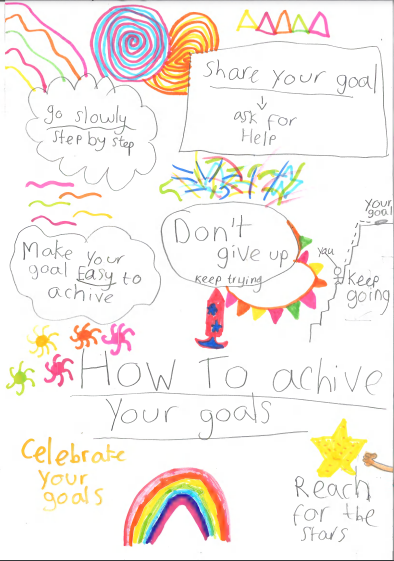 Share your goal
ask for
Help
go slowly
step by step
your
goal
Don't
give up
keep trying
you
keep
going
Make your
goal Easy to
achive
How To achive
Your goals
Celebrate
your
goals
Reach
for the
stars